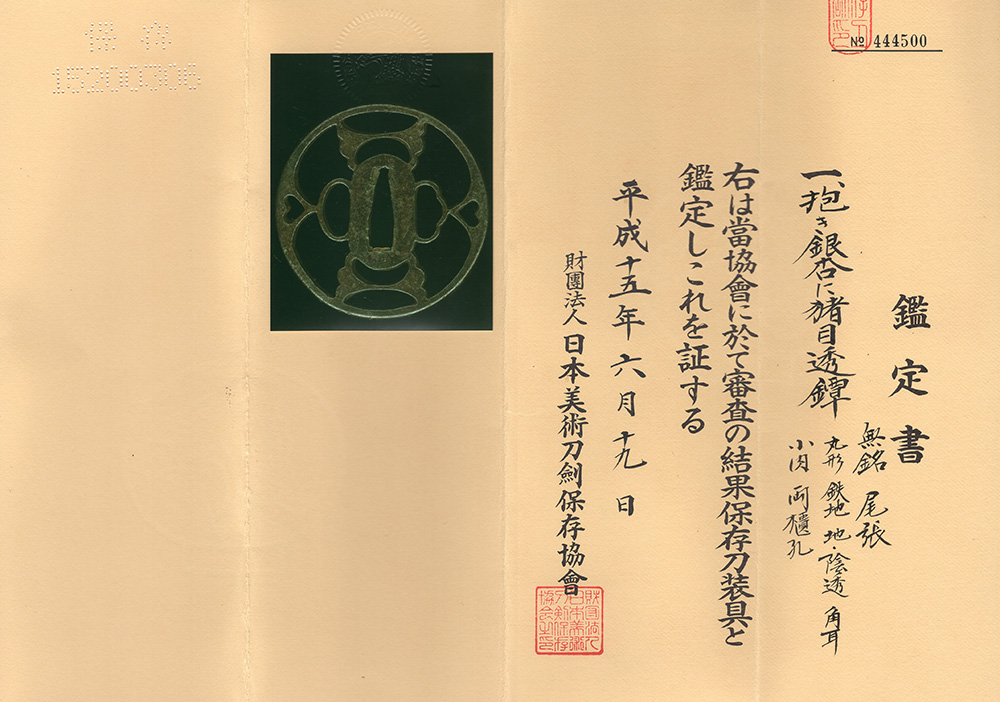 № 444500
鑑定書
一、抱き銀杏に猪目透鐔
無銘 尾張
丸形 鉄地 地・陰透 角耳
小肉 両櫃孔
右は當協會に於て審査の結果保存刀装具と
鑑定しこれを証する
平成十五年六月十九日
財團法人日本美術刀劍保存協會
保存
15200306